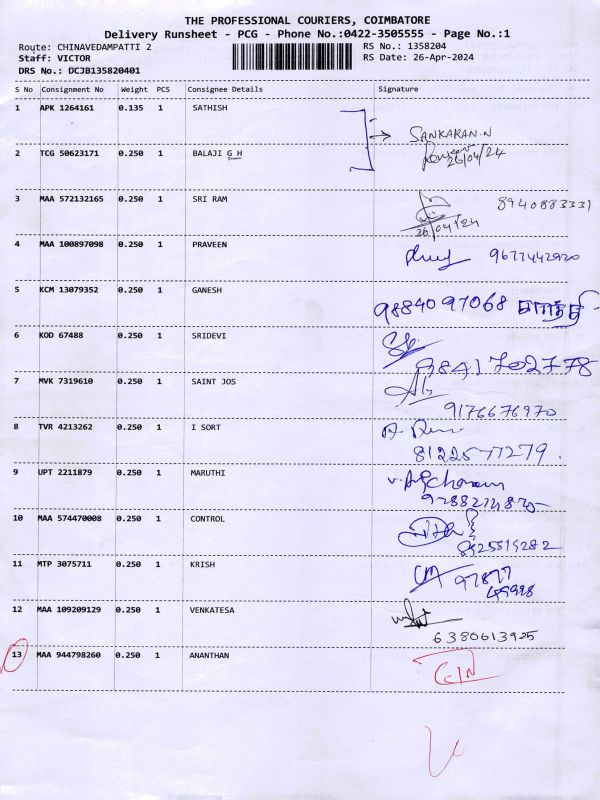 THE PROFESSIONAL COURIERS, COIMBATORE
Delivery Runsheet - PCG - Phone No.:0422-3505555 - Page No.:1
Route: CHINAVEDAMPATTI 2 RS No.: 1358204
Staff: VICTOR RS Date: 26-Apr-2024
DRS No.: DCJB135820401
S No Consignment No Weight PCS Consignee Details Signature
1 APK 1264161 0.135 1 SATHISH
SANKARAN.N
26/04/24
2 TCG 50623171 0.250 1 BALAJI G H
3 MAA 572132165 0.250 1 SRI RAM 8940883331
26/04/24
4 MAA 100897098 0.250 1 PRAVEEN 9677442920
5 KCM 13079352 0.250 1 GANESH 9884097068
6 KOD 67488 0.250 1 SRIDEVI
9841702778
7 MVK 7319610 0.250 1 SAINT JOS
9176676970
8 TVR 4213262 0.250 1 I SORT
8122577279.
9 UPT 2211879 0.250 1 MARUTHI
10 MAA 574470008 0.250 1 CONTROL
8925519282
11 MTP 3075711 0.250 1 KRISH 97877
49998
12 MAA 109209129 0.250 1 VENKATESA
6380613925
13 MAA 944798260 0.250 1 ANANTHAN